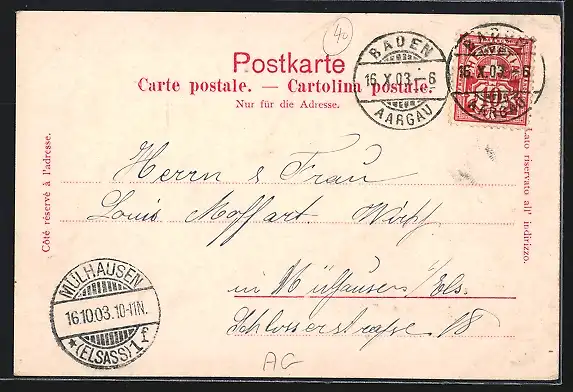 40
Postkarte
Carte postale. — Cartolina postale.
Nur für die Adresse.
BADEN
16.X.03.-6
AARGAU
BADEN
16.X.03.-6
AARGAU
10
Côté réservé à l'adresse.
Lato riservato all' indirizzo.
Herrn & Frau
Louis Moffart.
in Mülhausen i/Els.
Schlosserstrasse 18
MÜLHAUSEN
16.10.03.10-11N.
*(ELSASS)1f
AG